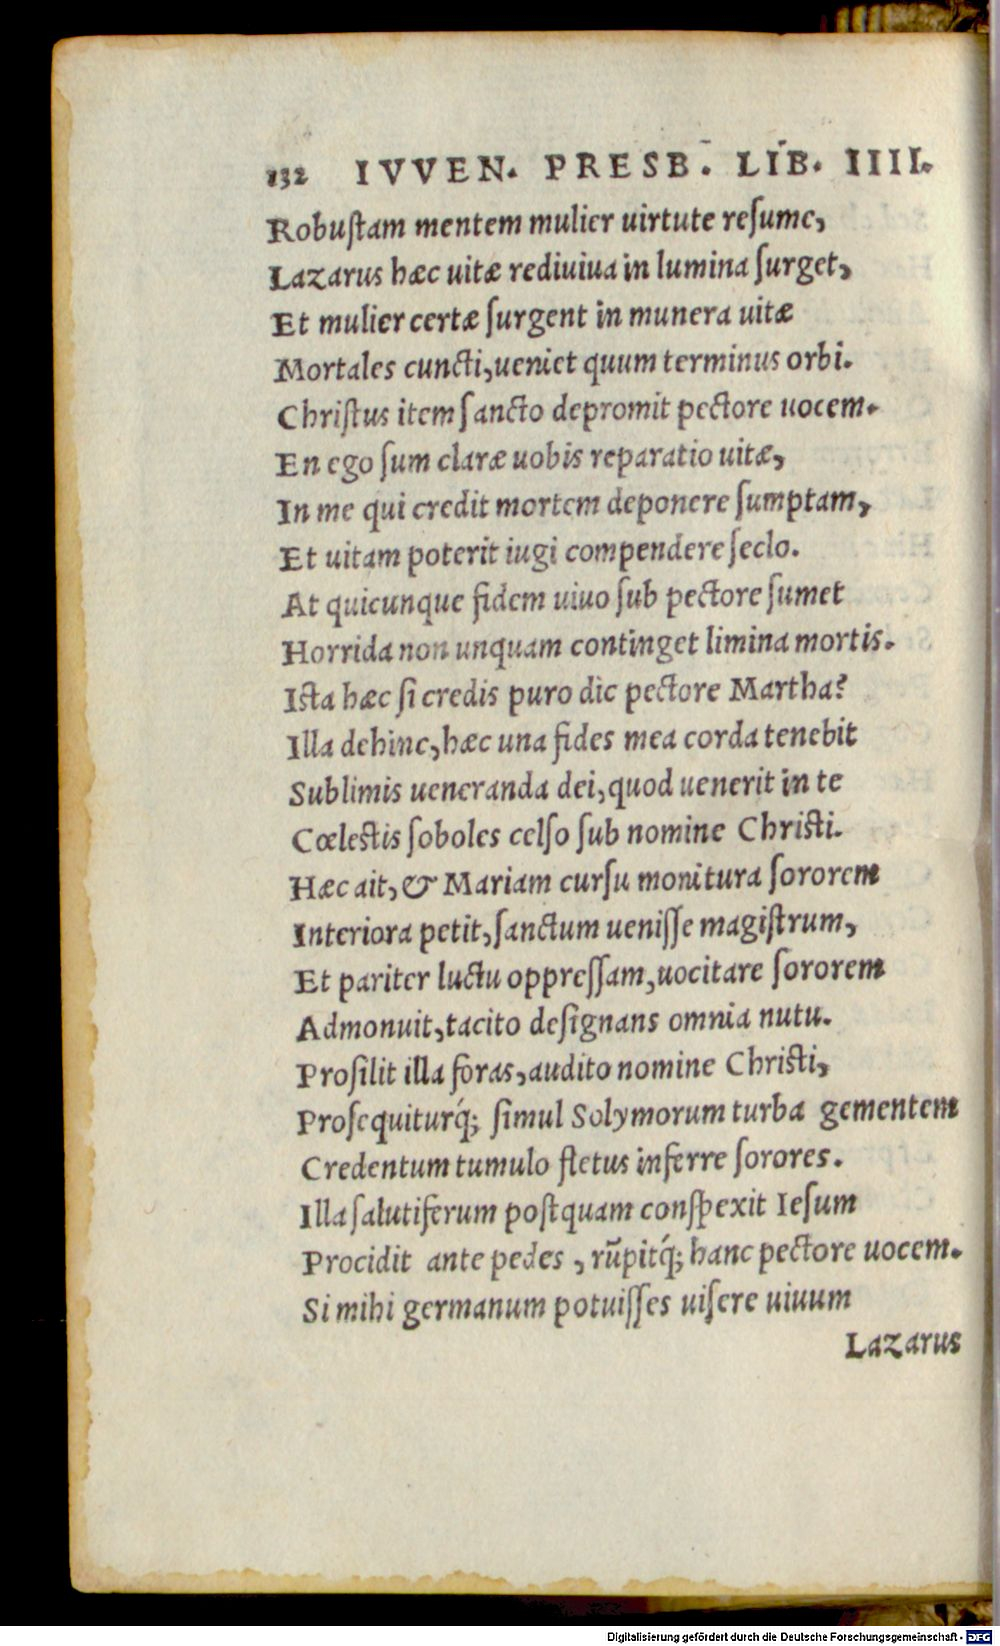 132 IVVEN. PRESB. LIB. IIII.
Robuſtam mentem mulier uirtute reſume,
Lazarus hæc uitæ rediuiua in lumina ſurget,
Et mulier certæ ſurgent in munera uitæ
Mortales cuncti, ueniet quum terminus orbi.
Chriſtus item ſancto depromit pectore uocem.
En ego ſum claræ uobis reparatio uitæ,
In me qui credit mortem deponere ſumptam,
Et uitam poterit iugi compendere ſeclo.
At quicunque fidem uiuo ſub pectore ſumet
Horrida non unquam continget limina mortis.
Iſta hæc ſi credis puro dic pectore Martha?
Illa dehinc, hæc una fides mea corda tenebit
Sublimis ueneranda dei, quod uenerit in te
Cœleſtis ſoboles celſo ſub nomine Chriſti.
Hæc ait, & Mariam curſu monitura ſororem
Interiora petit, ſanctum ueniſſe magiſtrum,
Et pariter luctu oppreſſam, uocitare ſororem
Admonuit, tacito deſignans omnia nutu.
Proſilit illa foras, audito nomine Chriſti,
Proſequiturq́; ſimul Solymorum turba gementem
Credentum tumulo fletus inferre ſorores.
Illa ſalutiferum poſtquam conſpexit Ieſum
Procidit ante pedes, rūpitq́; hanc pectore uocem.
Si mihi germanum potuiſſes uiſere uiuum
Lazarus
Digitalisierung gefördert durch die Deutsche Forschungsgemeinschaft - DFG